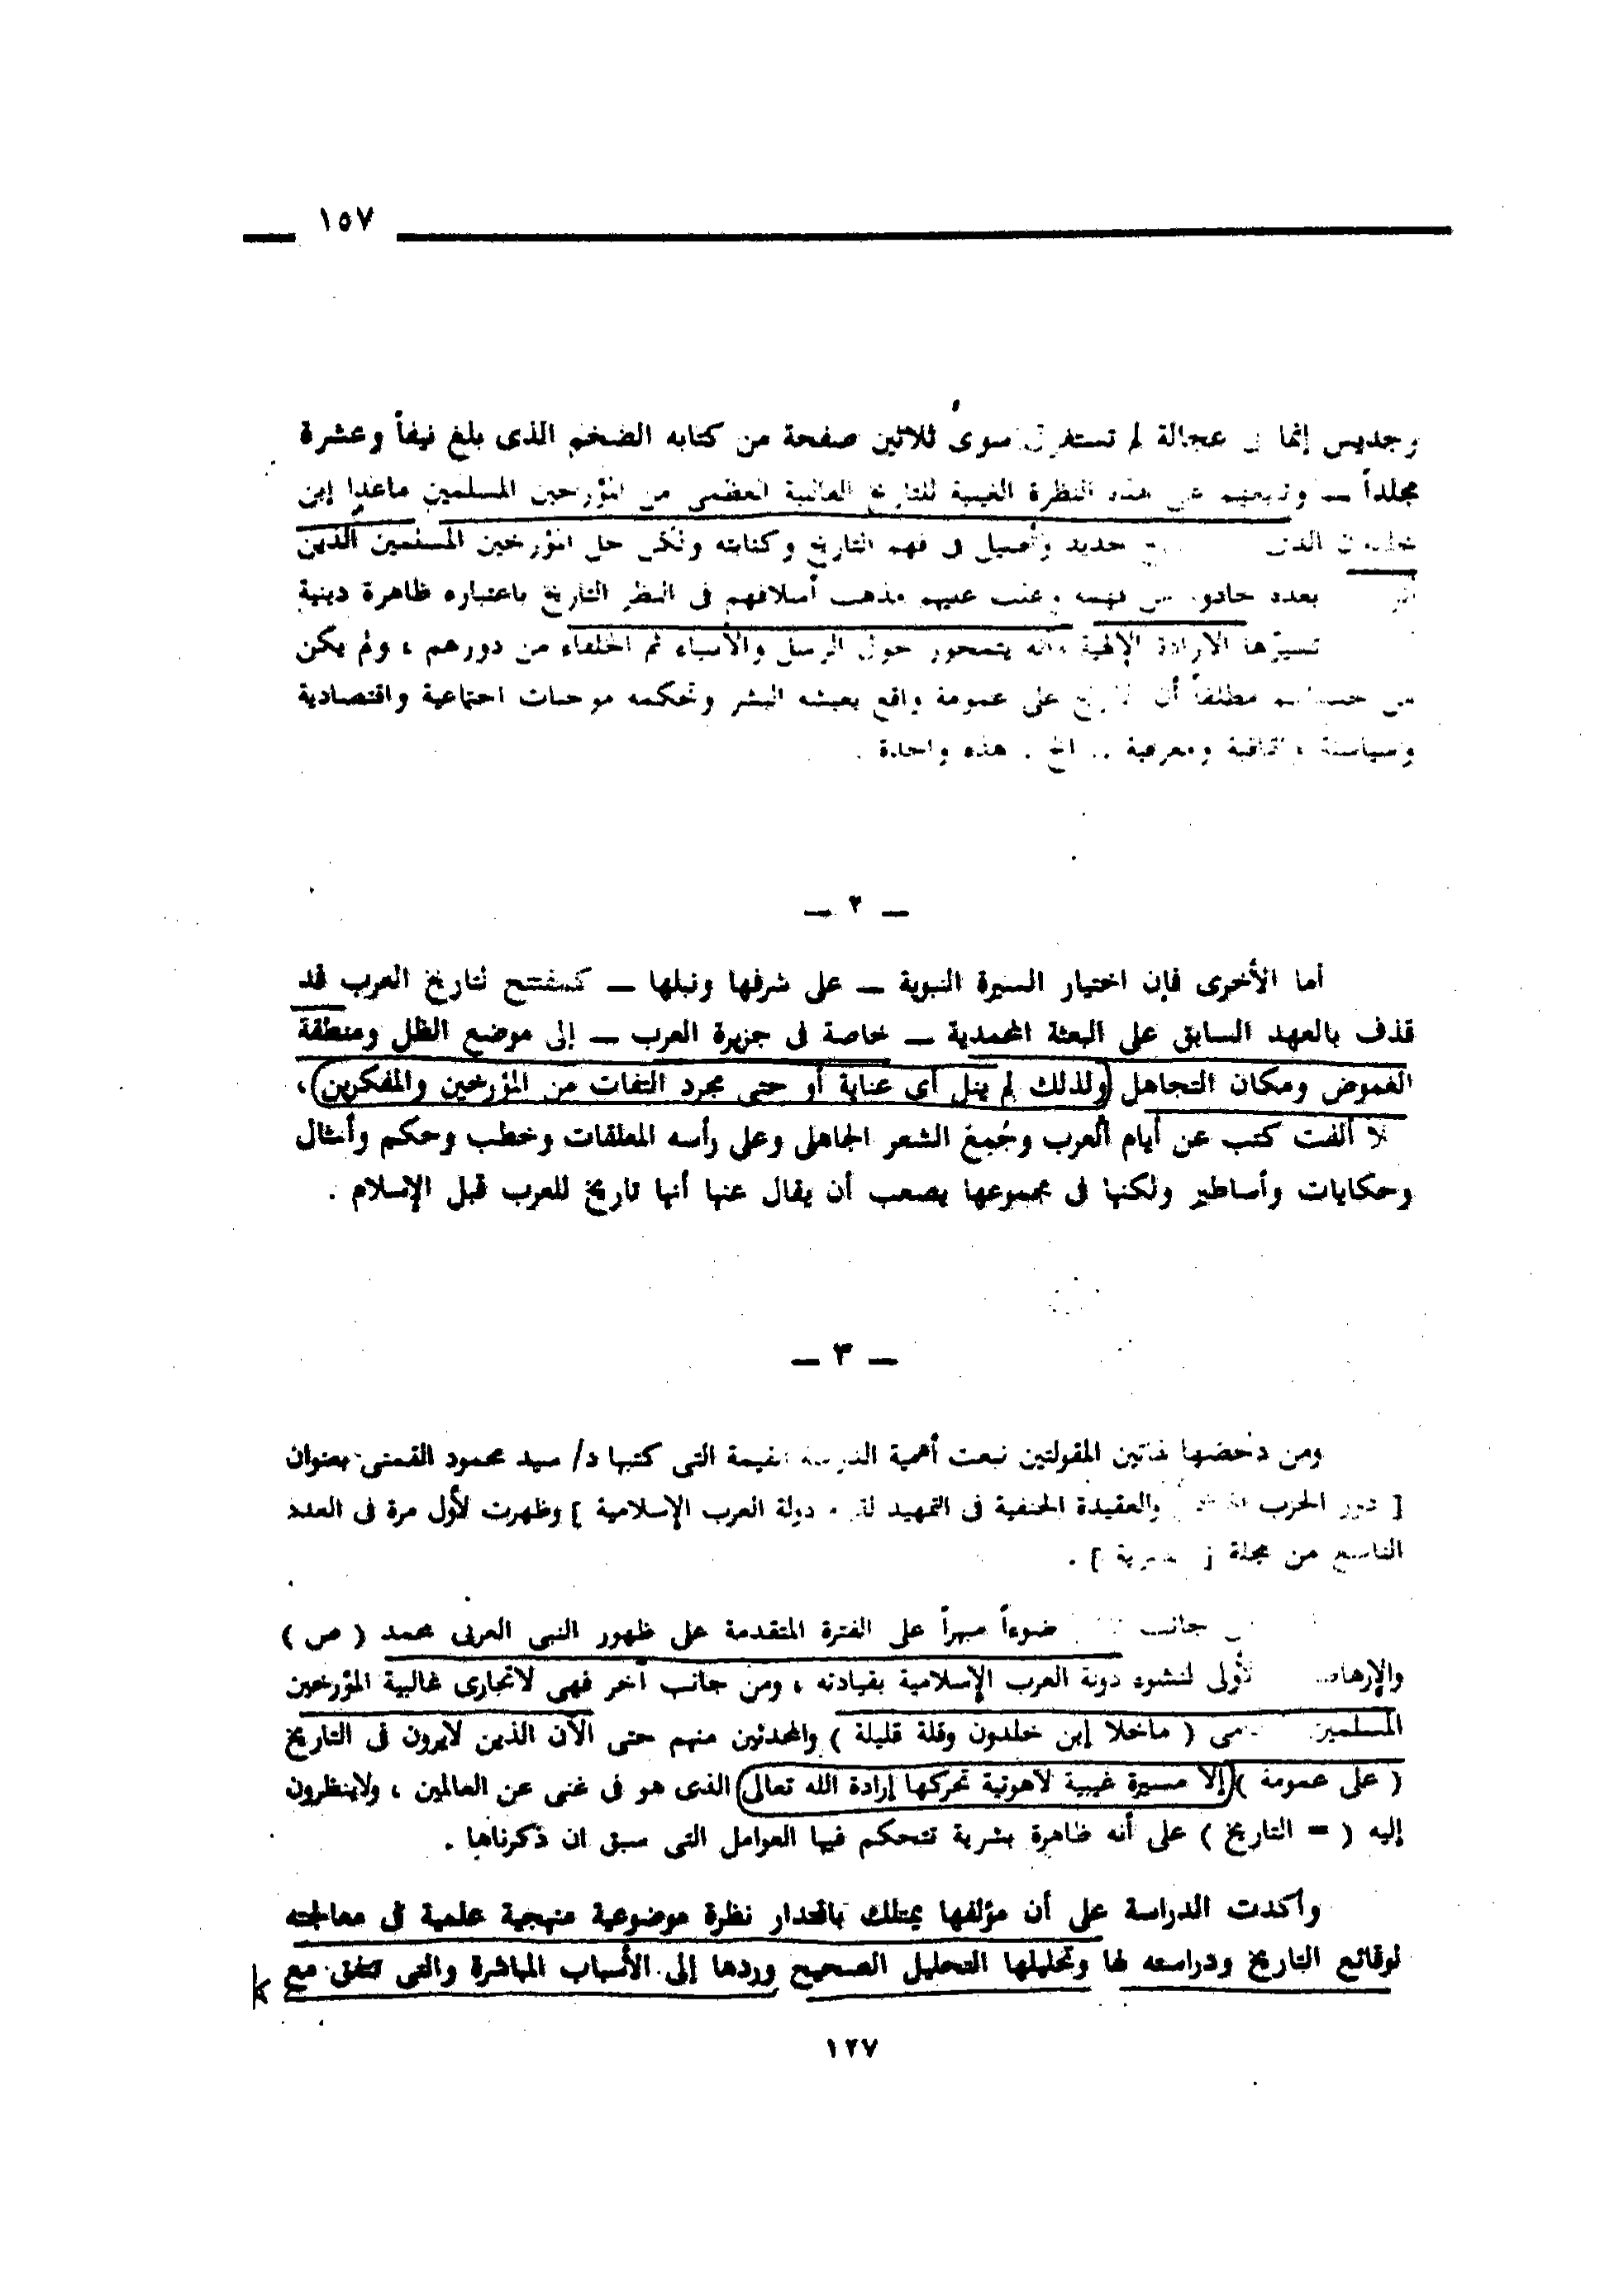 ١٥٧
وجديس إنما عجالة لم تستغرق سوى ثلاثين صفحة من كتابه الضخم الذى بلغ نيفاً وعشرة
مجلداً ــ هذه النظرة الغيبية للتاريخ الغالبية العظمى من المؤرخين المسلمين ماعدا إبن
خلدون جديد وأصيل فى فهم التاريخ وكتابته ولكن جل المؤرخين المسلمين الذين
بعده عليهم مذهب أسلافهم فى النظر التاريخ باعتباره ظاهرة دينية
تسيّرها الارادة الإلهية وأنه يتمحور حول الرسل والأنبياء ثم الخلفاء من دورهم ، ولم يكن
مطلقاً أن على عمومة واقع يعيشه البشر وتحكمه موجبات اجتماعية واقتصادية
وسياسية ومعرفية .. الخ . هذه واحدة .
ــ ٢ ــ
أما الأخرى فإن اختيار السيرة النبوية ــ على شرفها ونبلها ــ كمفتتح لتاريخ العرب قد
قذف بالعهد السابق على البعثة المحمدية ــ خاصة فى جزيرة العرب ــ إلى موضع الظل ومنطقة
الغموض ومكان التجاهل ( ولذلك لم ينل أى عناية أو حتى مجرد التفات من المؤرخين والمفكرين ) ،
ألفت كتب عن أيام العرب وجُمِعَ الشعر الجاهلى وعلى رأسه المعلقات وخطب وحكم وأمثال
وحكايات وأساطير ولكنها فى مجموعها يصعب أن يقال عنها أنها تاريخ للعرب قبل الإسلام .
ــ ٣ ــ
ومن دحضها هاتين المقولتين نبعت أهمية الدراسة القيمة التى كتبها د/ سيد محمود القمنى بعنوان
[ دور الحزب والعقيدة الحنفية فى التمهيد دولة العرب الإسلامية ] وظهرت لأول مرة فى العدد
التاسع من مجلة [ ] .
جانب ضوءاً مبهراً على الفترة المتقدمة على ظهور النبى العربى محمد ( ص )
الأولى لنشوء دولة العرب الإسلامية بقيادته ، ومن جانب آخر فهى لاتجارى غالبية المؤرخين
المسلمين ( ماخلا إبن خلدون وقلة قليلة ) والمحدثين منهم حتى الآن الذين لايرون فى التاريخ
( على عمومة ) إلا مسيرة غيبية لاهوتية تحركها إرادة الله تعالى الذى هو فى غنى عن العالمين ، ولاينظرون
إليه ( = التاريخ ) على أنه ظاهرة بشرية تتحكم فيها العوامل التى سبق ان ذكرناها .
وأكدت الدراسة على أن مؤلفها يمتلك باقتدار نظرة موضوعية منهجية علمية فى معالجته
لوقائع التاريخ ودراسته لها وتحليلها التحليل الصحيح وردها إلى الأسباب المباشرة والتى تتفق مع
١٢٧